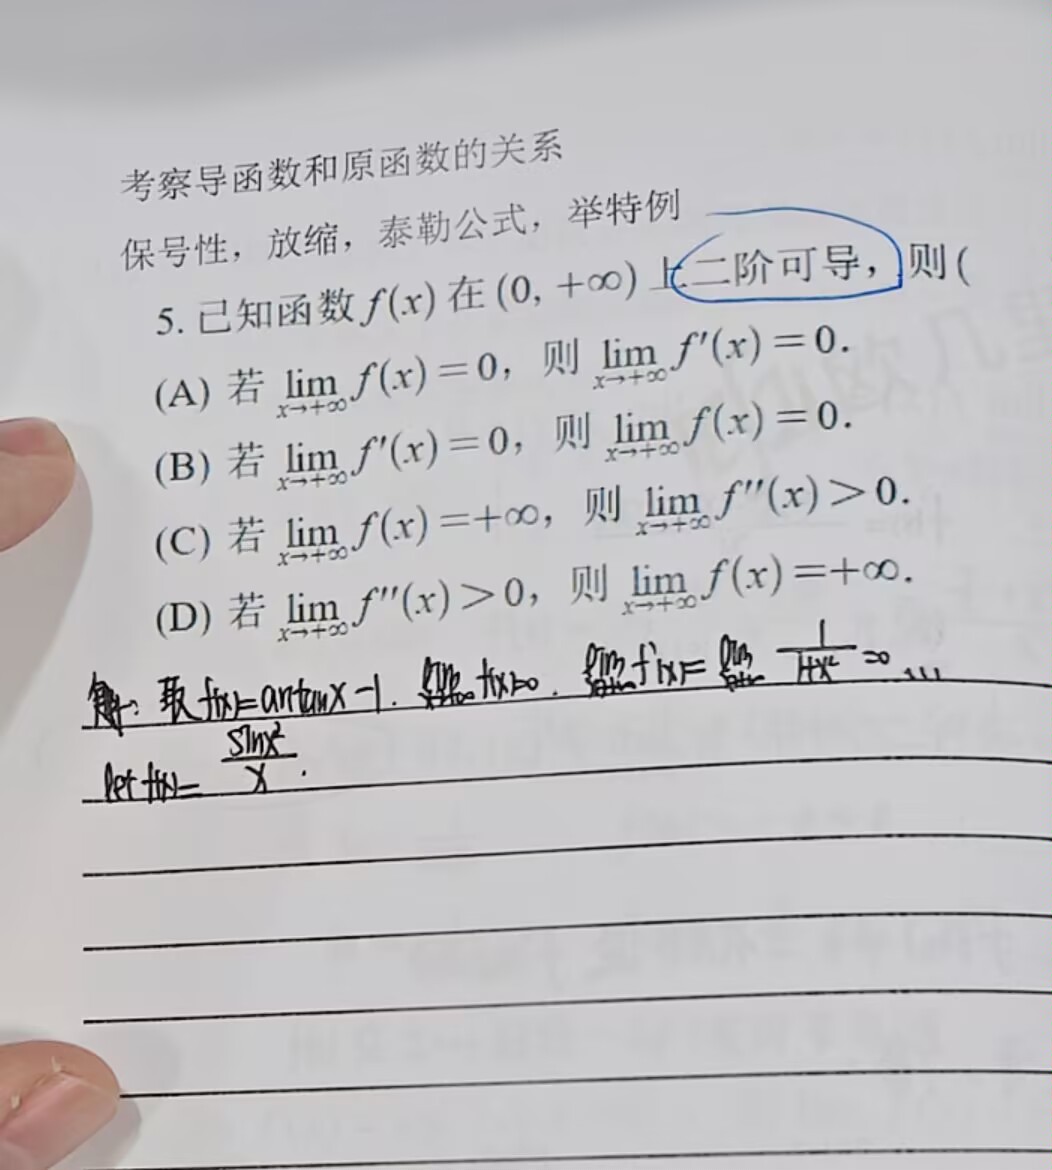 考察导函数和原函数的关系
保号性，放缩，泰勒公式，举特例
5. 已知函数 f(x) 在 (0, +∞) 上二阶可导，则 (
(A) 若 lim x→+∞ f(x)=0，则 lim x→+∞ f′(x)=0.
(B) 若 lim x→+∞ f′(x)=0，则 lim x→+∞ f(x)=0.
(C) 若 lim x→+∞ f(x)=+∞，则 lim x→+∞ f″(x)>0.
(D) 若 lim x→+∞ f″(x)>0，则 lim x→+∞ f(x)=+∞.
取 f(x)=arctanx-1. lim f(x)=0. lim f′(x)= lim 1/1+x² =0 ...
let f(x)= sinx²/x.